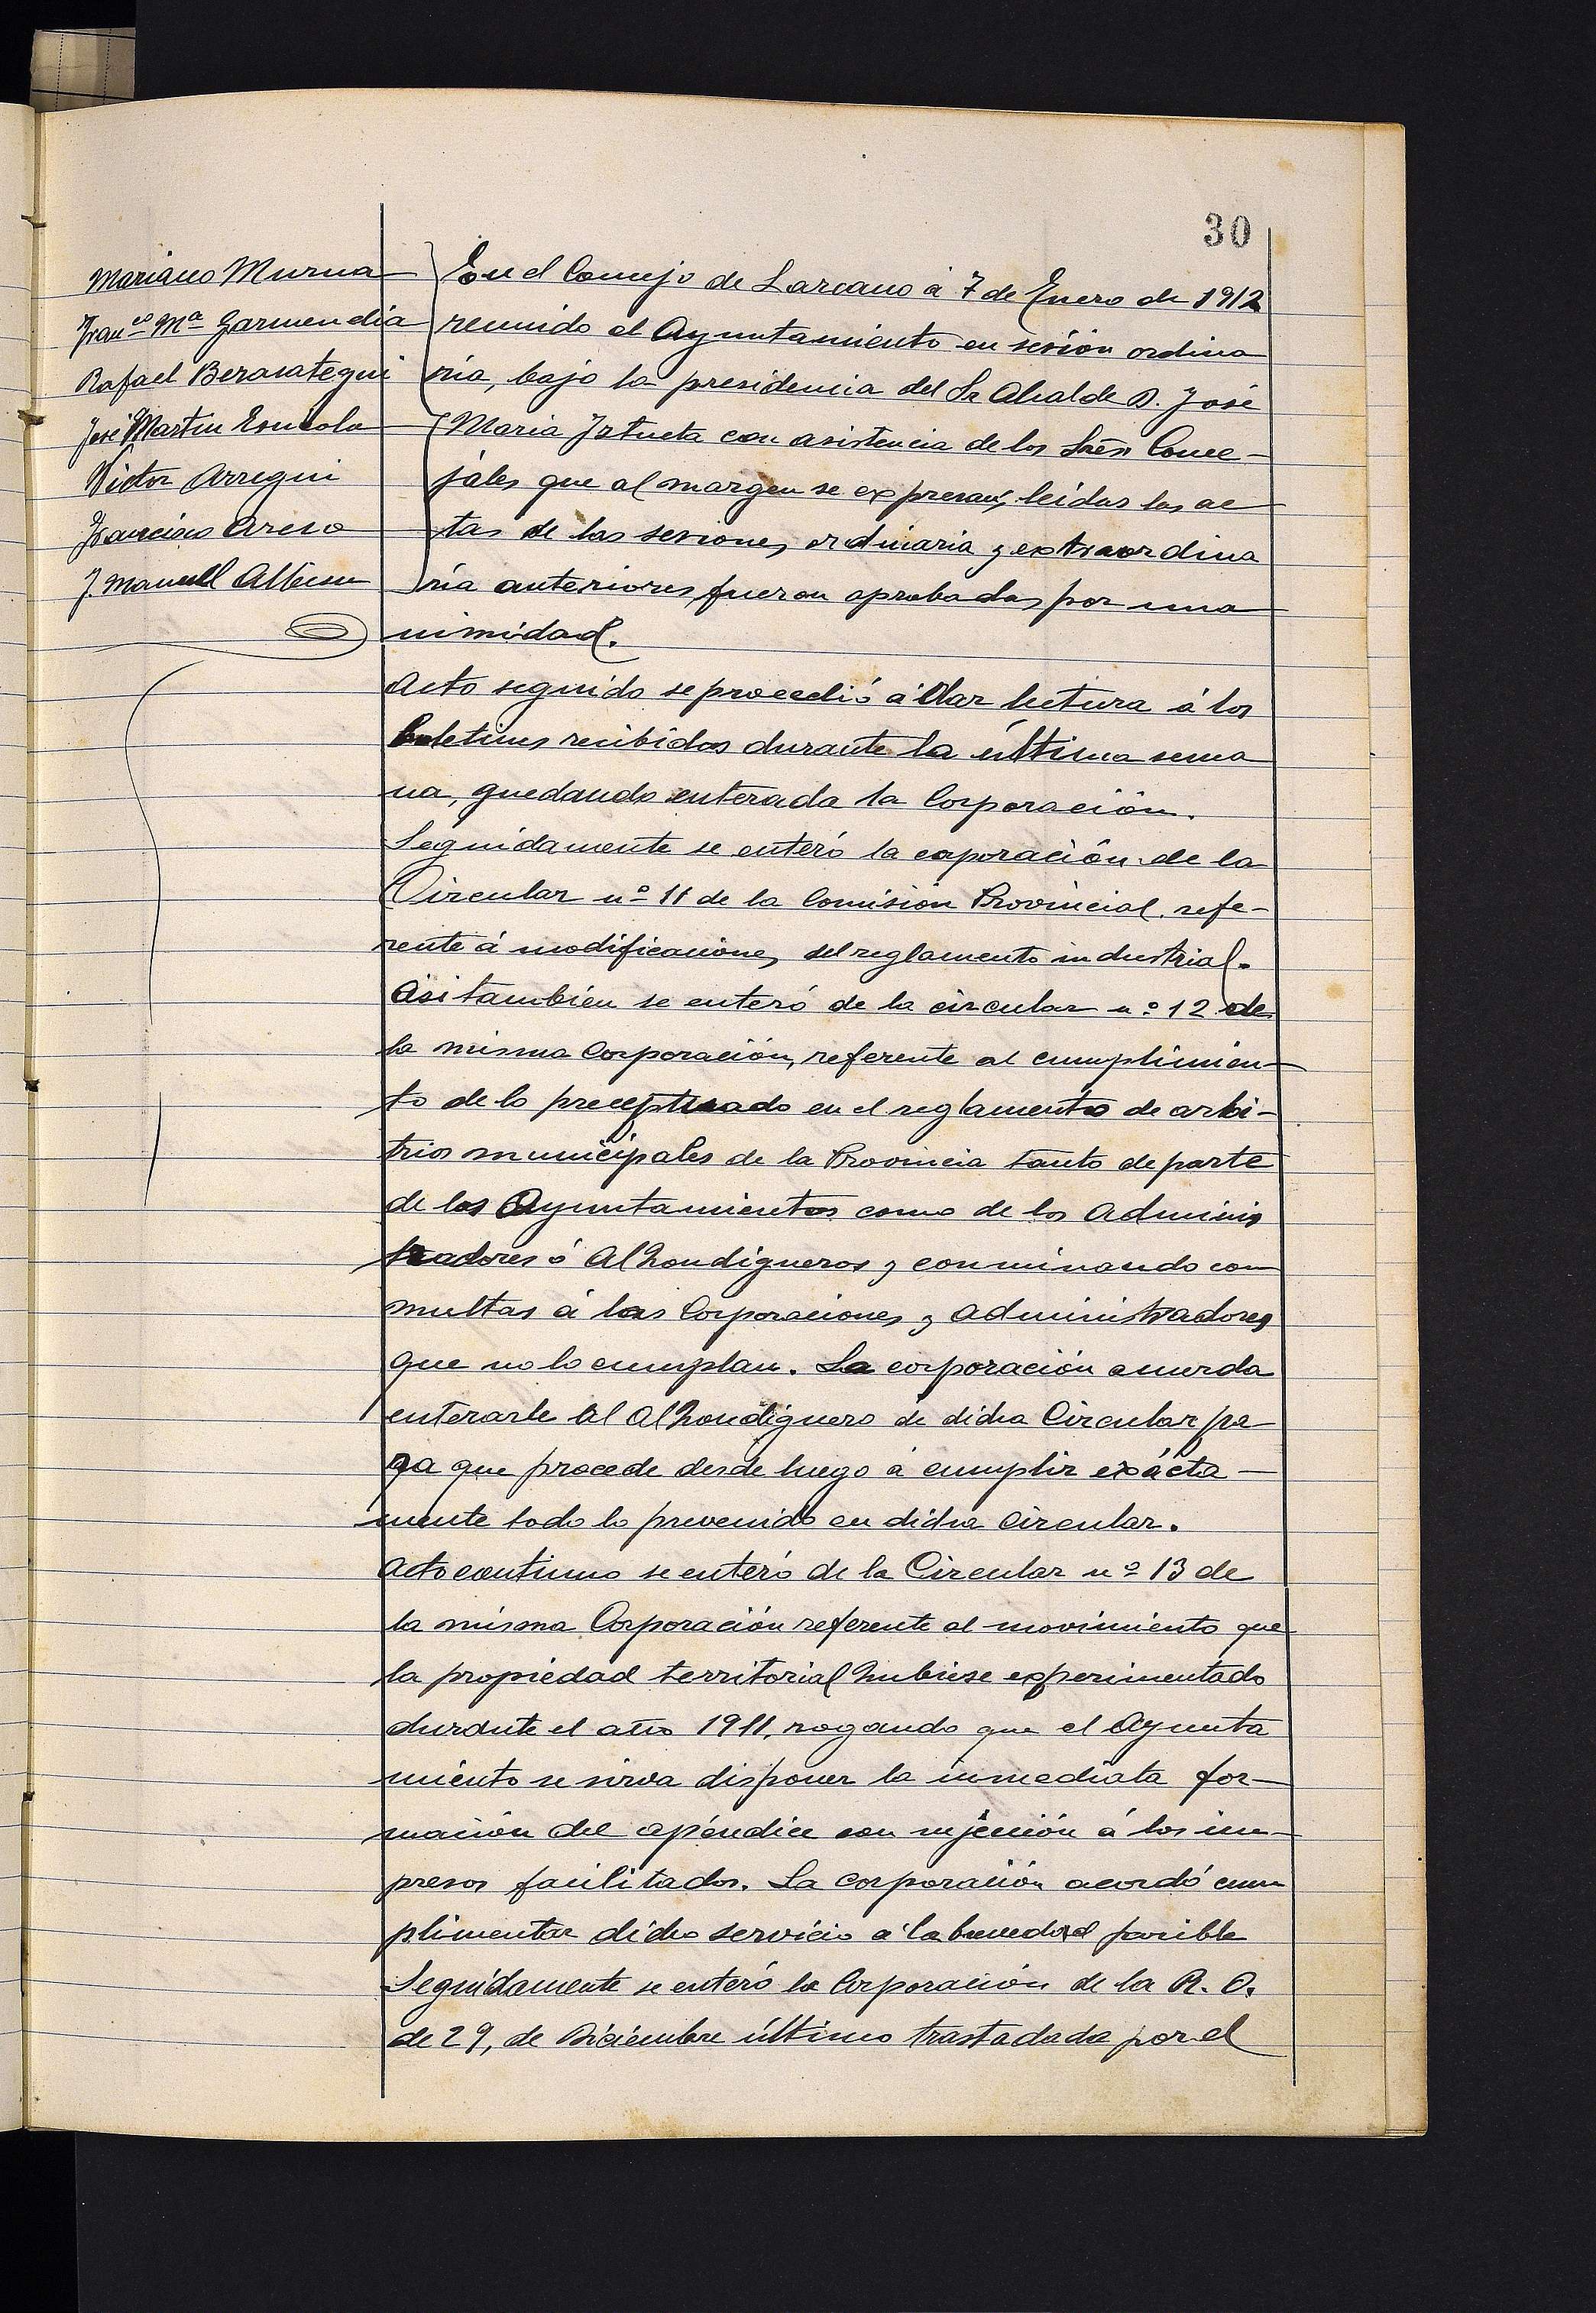 30
Mariano Murua
Fran.co Mª Garmendia
Rafael Berasategui
José Martin
Victor Arregui
Francisco Areso
J. Manuel Albisu
En el Concejo de Lazcano á 7 de Enero de 1912
reunido el Ayuntamiento en sesión ordina
ria, bajo la presidencia del Sr Alcalde D. José
Maria Iztueta con asistencia de los Srēs Conce-
jales que al margen se expresan, leidas las ac
tas de las sesiones ordinaria y extraordina
ria anteriores, fueron aprobadas por una
nimidad.
Acto seguido se procedió á dar lectura á los
boletines recibidos durante la última sema
na, quedando enterada la Corporación.
Seguidamente se enteró la corporación de la
Circular nº 11 de la Comisión Provincial refe-
rente á modificaciones del reglamento industrial.
Asi también se enteró de la circular nº 12 de
la misma Corporación, referente al cumplimien-
to de lo preceptuado en el reglamento de arbi-
trios municipales de la Provincia tanto de parte
de los Ayuntamientos como de los Adminis
tradores ó Alhondigueros y conminando con
multas á las Corporaciones y administradores
que no lo cumplan. La corporación acuerda
enterarle al Alhondiguero de dicha Circular pa-
ra que procede desde luego á cumplir exácta-
mente todo lo prevenido en dicha circular.
Acto continuo se enteró de la Circular nº 13 de
la misma Corporación referente al movimiento que
la propiedad territorial hubiese experimentado
durante el año 1911, rogando que el Ayunta
miento se sirva disponer la inmediata for-
mación del apéndice con sujeción á los im-
presos facilitados. La corporación acordó cum
plimentar dicho servicio á la brevedad posible
Seguidamente se enteró la Corporación de la R. O.
de 29, de Diciembre último trasladada por el